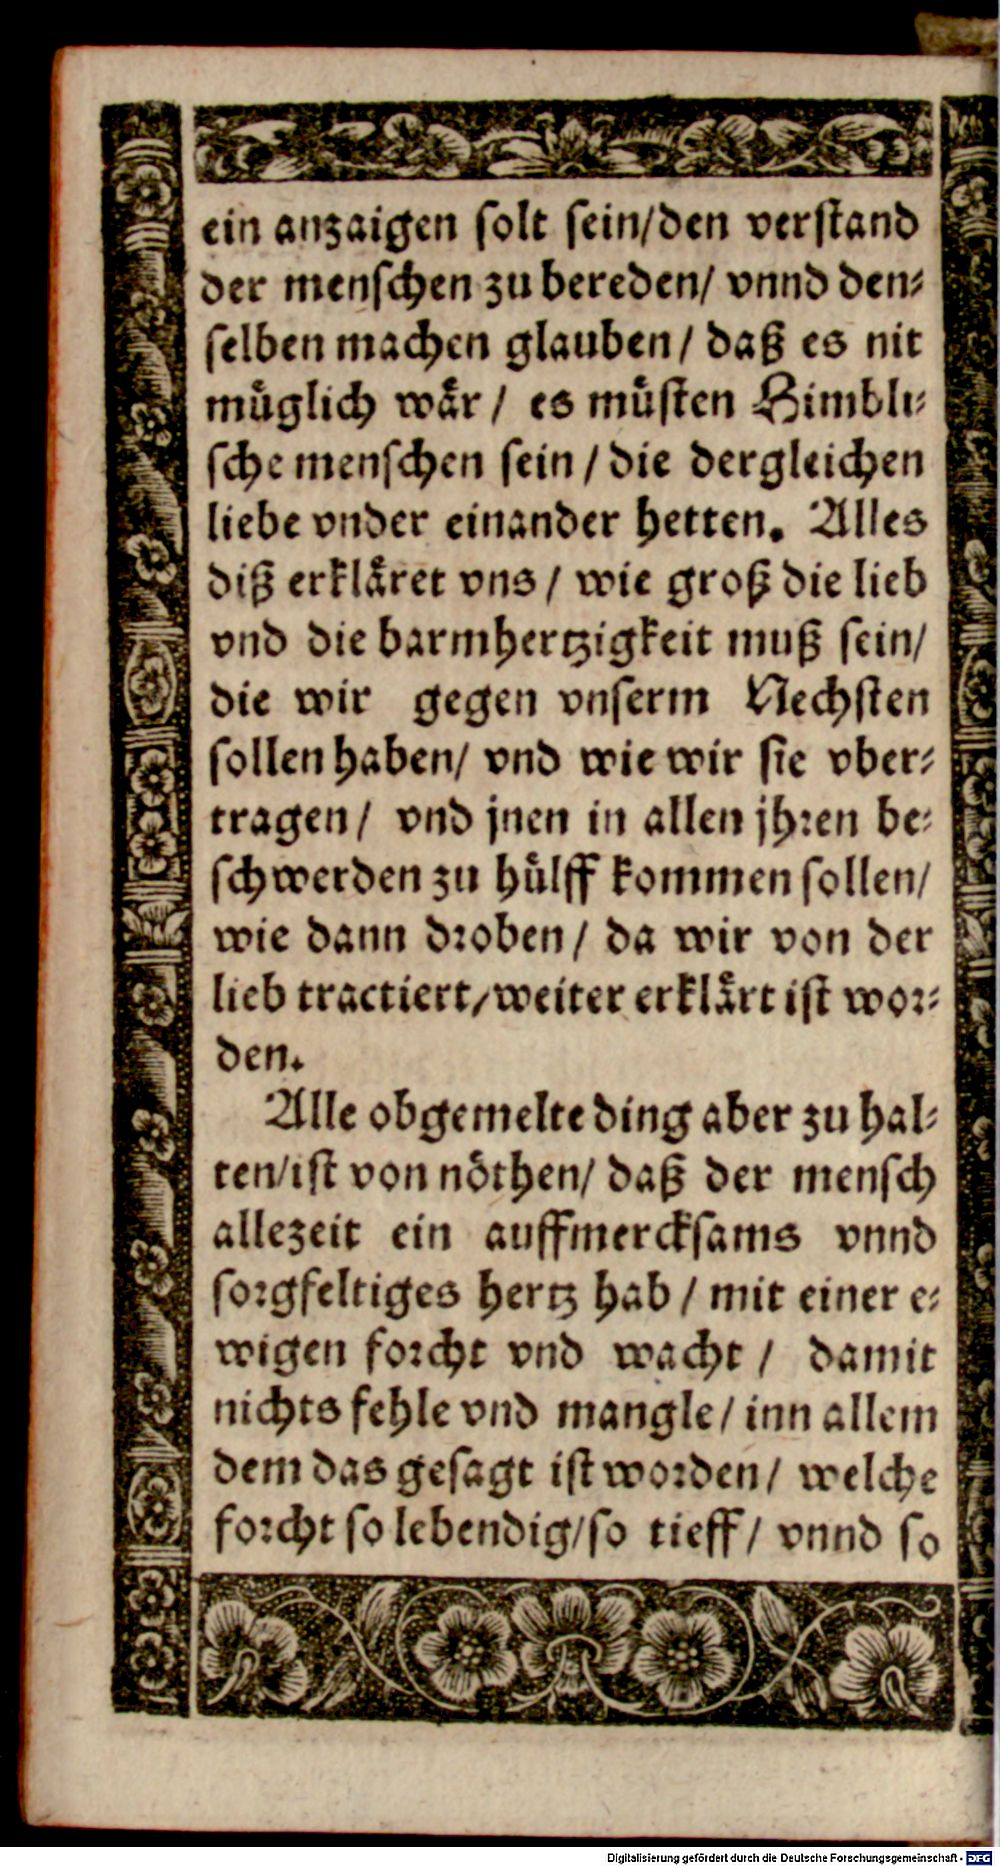 ein anzaigen solt sein/den verstand
der menschen zu bereden/ vnnd den-
selben machen glauben/ daß es nit
muͤglich waͤr/ es muͤsten Himbli-
sche menschen sein/die dergleichen
liebe vnder einander hetten. Alles
diß erklaͤret vns/ wie groß die lieb
vnd die barmhertzigkeit muß sein/
die wir gegen vnserm Nechsten
sollen haben/ vnd wie wir sie vber-
tragen/ vnd jnen in allen jhren be-
schwerden zu huͤlff kommen sollen/
wie dann droben/ da wir von der
lieb tractiert/weiter erklaͤrt ist wor-
den.
Alle obgemelte ding aber zu hal-
ten/ist von noͤthen/ daß der mensch
allezeit ein auffmercksams vnnd
sorgfeltiges hertz hab/ mit einer e-
wigen forcht vnd wacht/ damit
nichts fehle vnd mangle/inn allem
dem das gesagt ist worden/ welche
forcht so lebendig/so tieff/ vnnd so
Digitalisierung gefördert durch die Deutsche Forschungsgemeinschaft - DFG